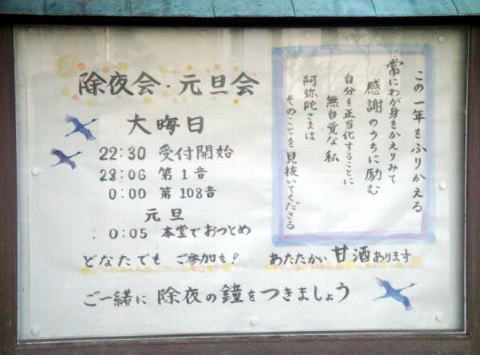 除夜会・元旦会
大晦日
22:30 受付開始
23:06 第1音
0:00 第108音
元旦
0:05 本堂でおつとめ
どなたでも ご参加も!
この一年をふりかえる
常にわが身をかえりみて
感謝のうちに励む
自分を正当化することに
無自覚な私
阿弥陀さまは
そのことを見抜いてくださる
あたたかい 甘酒あります
ご一緒に 除夜の鐘をつきましょう